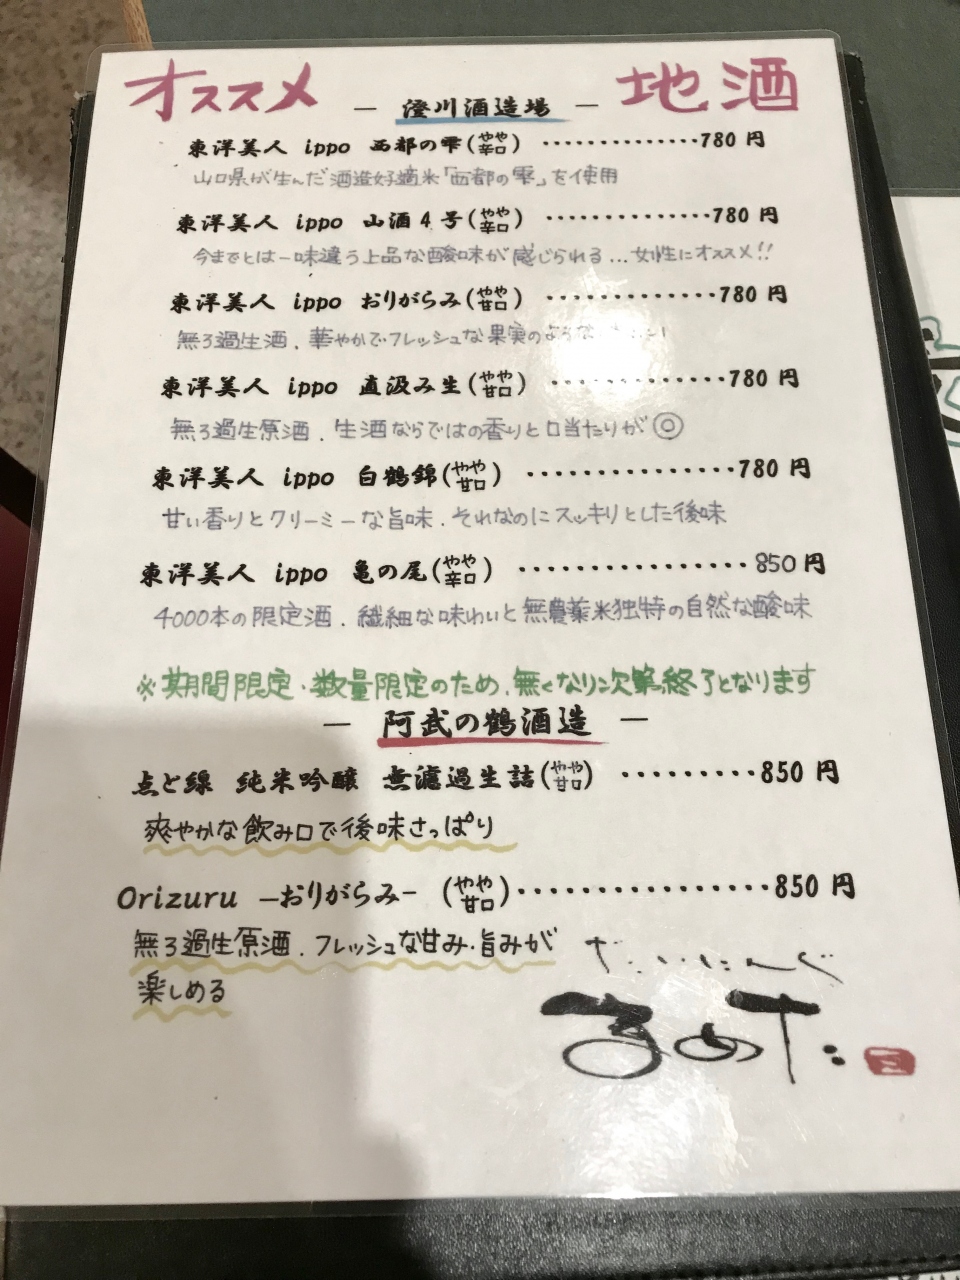 オススメ 地酒
― 澄川酒造場 ―
東洋美人 ippo 西都の雫(やや辛口) ‥‥‥‥‥‥‥780 円
山口県が生んだ酒造好適米「西都の雫」を使用
東洋美人 ippo 山酒4号(やや辛口) ‥‥‥‥‥‥‥780 円
今までとは一味違う上品な酸味が感じられる…女性にオススメ!!
東洋美人 ippo おりがらみ(やや甘口) ‥‥‥‥‥‥‥780 円
無ろ過生酒. 華やかでフレッシュな果実のような
東洋美人 ippo 直汲み生(やや甘口) ‥‥‥‥‥‥‥780 円
無ろ過生原酒. 生酒ならではの香りと口当たりが◎
東洋美人 ippo 白鶴錦(やや甘口) ‥‥‥‥‥‥‥780 円
甘い香りとクリーミーな旨味. それなのにスッキリとした後味
東洋美人 ippo 亀の尾(やや辛口) ‥‥‥‥‥‥‥850円
4000本の限定酒. 繊細な味わいと無農薬米独特の自然な酸味
※期間限定・数量限定のため、無くなり次第終了となります
― 阿武の鶴酒造 ―
点と線 純米吟醸 無濾過生詰(やや甘口) ‥‥‥‥‥850 円
爽やかな飲み口で後味さっぱり
Orizuru ―おりがらみ― (やや甘口)‥‥‥‥‥‥‥850 円
無ろ過生原酒. フレッシュな甘み・旨みが
楽しめる
だいにんぐ